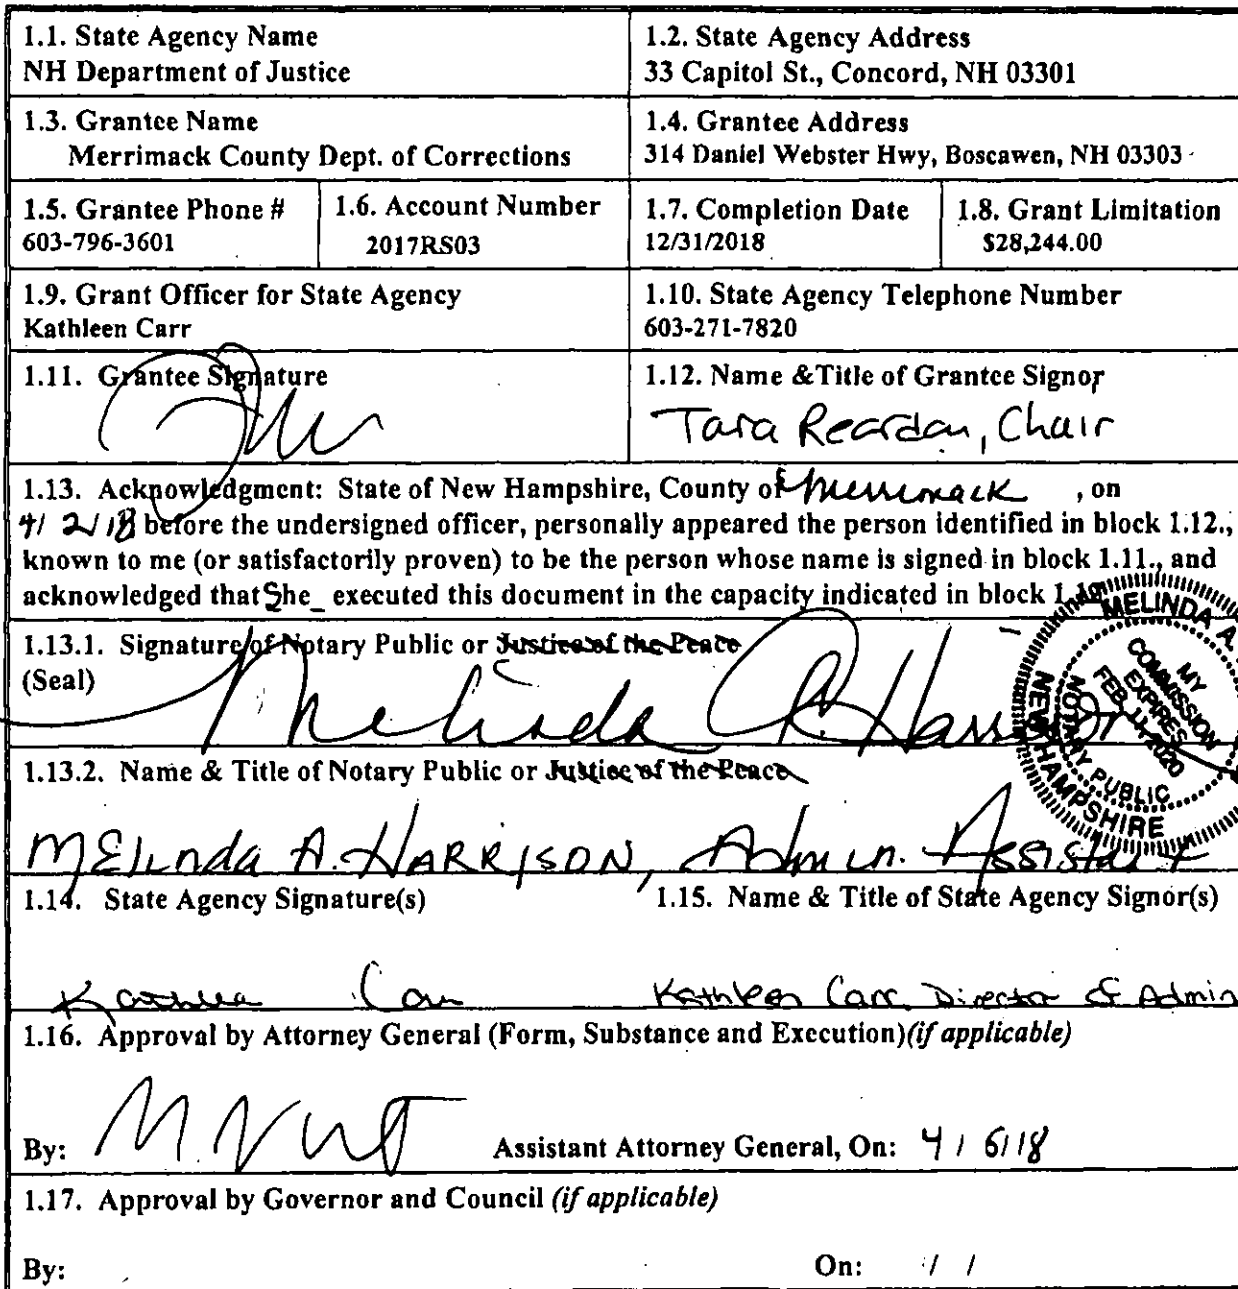 1.1. State Agency Name
NH Department of Justice
1.2. State Agency Address
33 Capitol St., Concord, NH 03301
1.3. Grantee Name
Merrimack County Dept. of Corrections
1.4. Grantee Address
314 Daniel Webster Hwy, Boscawen, NH 03303
1.5. Grantee Phone #
603-796-3601
1.6. Account Number
2017RS03
1.7. Completion Date
12/31/2018
1.8. Grant Limitation
$28,244.00
1.9. Grant Officer for State Agency
Kathleen Carr
1.10. State Agency Telephone Number
603-271-7820
1.11. Grantee Signature
1.12. Name &Title of Grantee Signor
Tara Reardon, Chair
1.13. Acknowledgment: State of New Hampshire, County of Merrimack , on
4/ 2/ 18 before the undersigned officer, personally appeared the person identified in block 1.12.,
known to me (or satisfactorily proven) to be the person whose name is signed in block 1.11., and
acknowledged that She_ executed this document in the capacity indicated in block
1.13.1. Signature of Notary Public or Justice of the Peace
(Seal)
Melinda A. Harrison
MELINDA A.
MY
COMMISSION
EXPIRES
FEB. 11, 2020
NOTARY PUBLIC
NEW HAMPSHIRE
1.13.2. Name & Title of Notary Public or Justice of the Peace
MELinda A. HARRISON, Admin. Assistant
1.14. State Agency Signature(s)
1.15. Name & Title of State Agency Signor(s)
Kathleen Carr
Kathleen Carr Director of Admin
1.16. Approval by Attorney General (Form, Substance and Execution)(if applicable)
By: Assistant Attorney General, On: 4 / 6 / 18
1.17. Approval by Governor and Council (if applicable)
By: On: / /